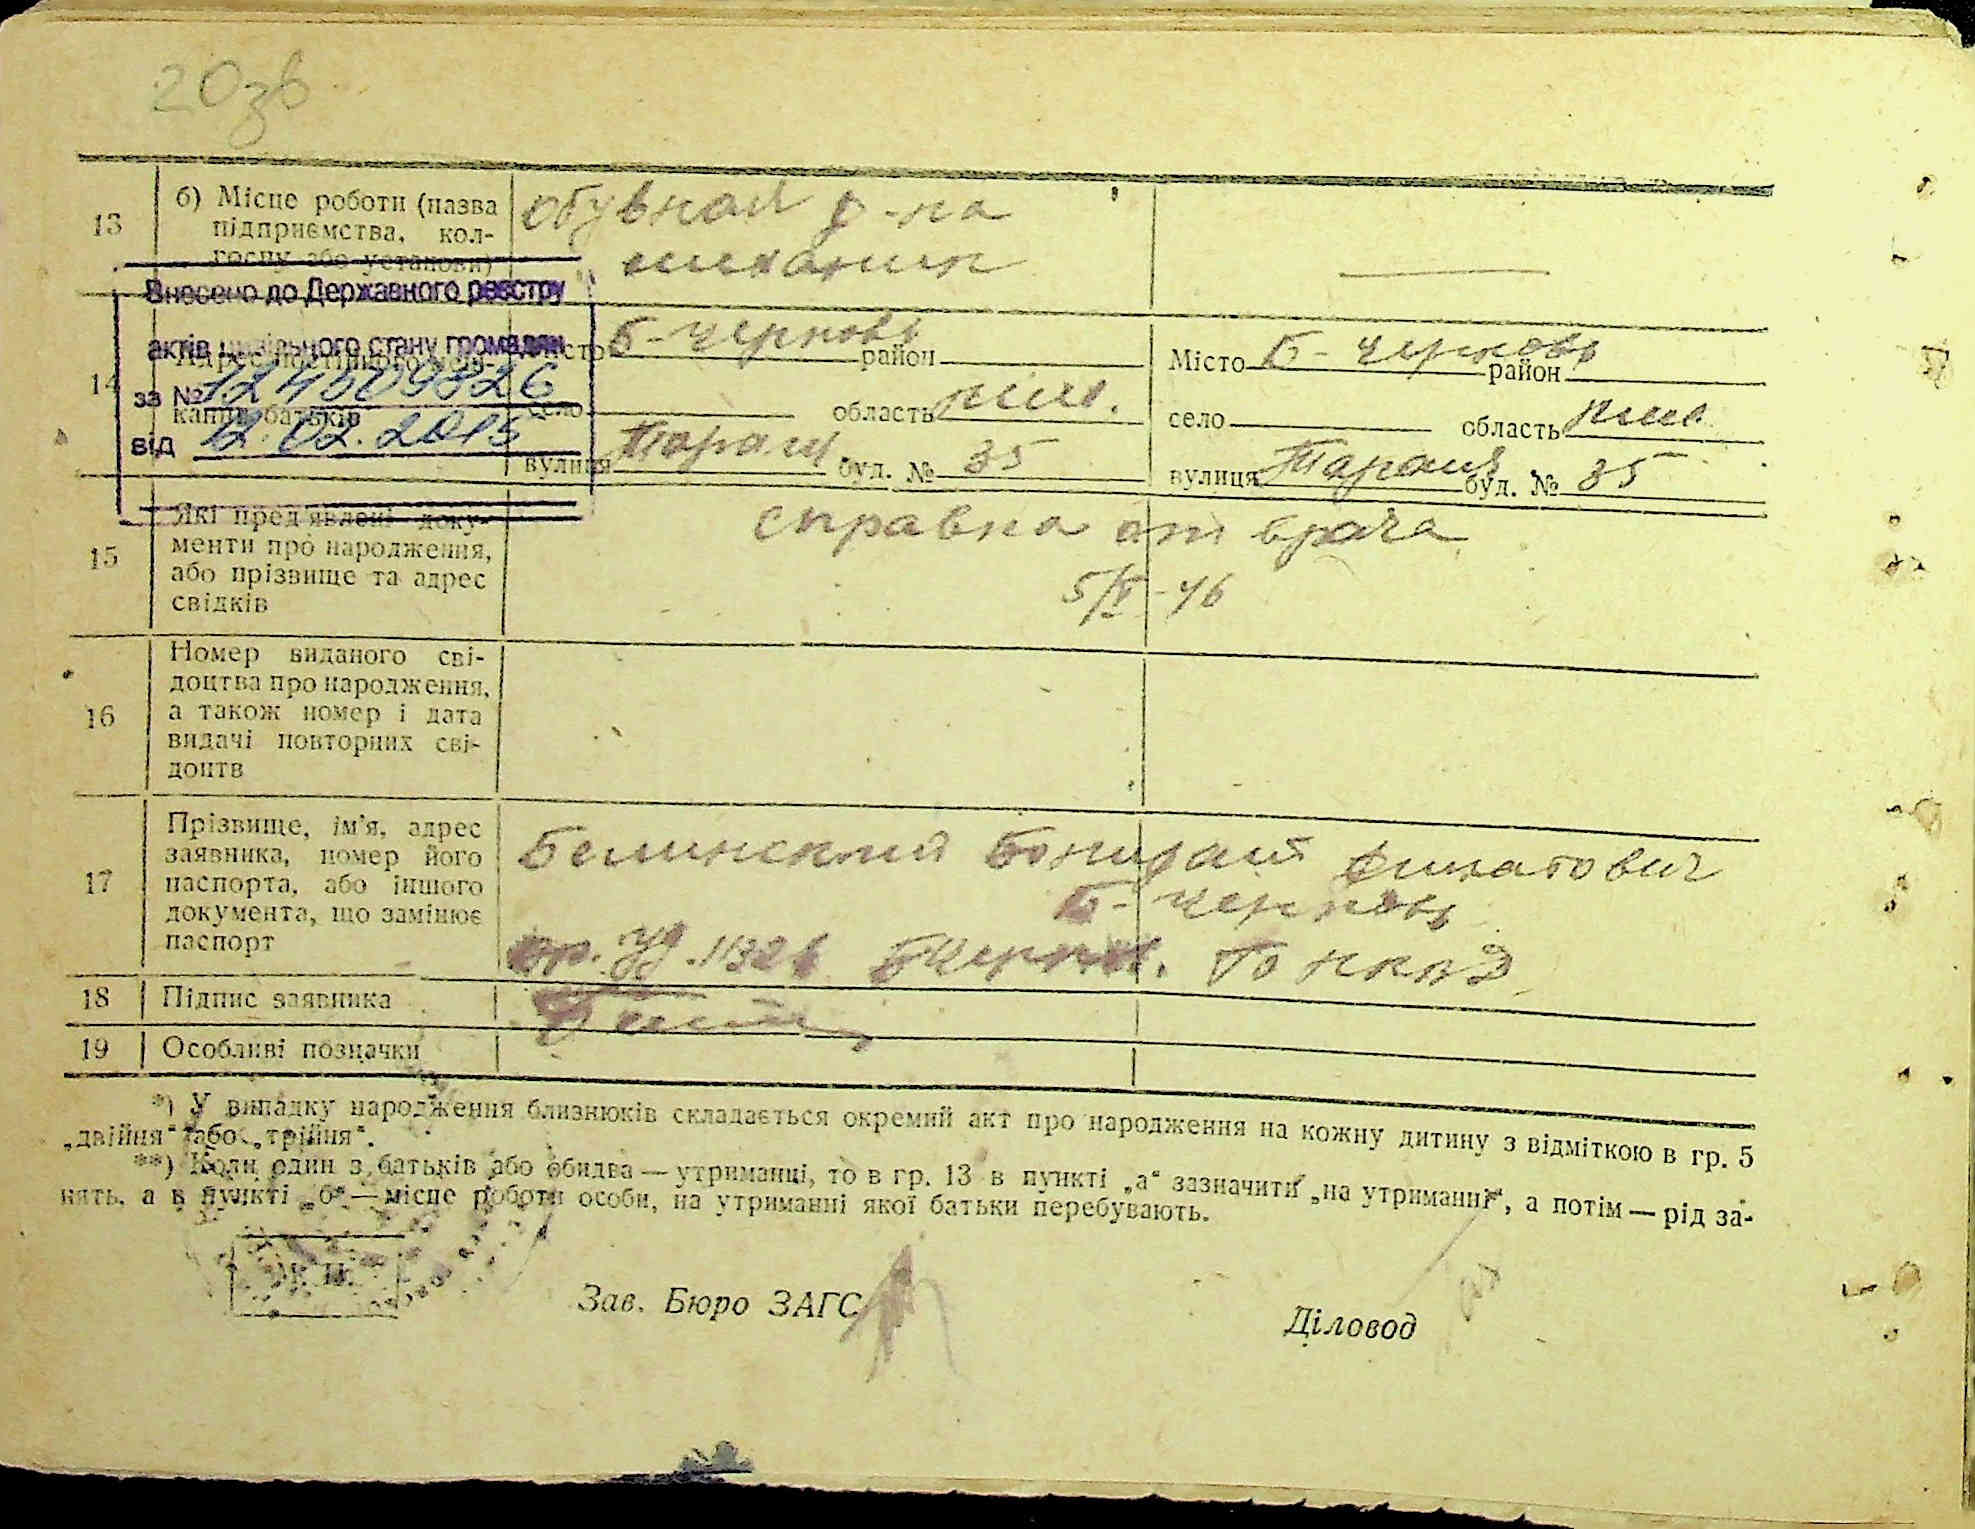 20зв
13
б) Місце роботи (назва
підприємства, кол-
госпу або установи)
обувная ф-ка
механик
Внесено до Державного реєстру
актів цивільного стану громадян
за №
від 12.02.2015
14
Місто Б-Церковь район
село область Киев.
вулиця Таращ. буд. № 35
Місто Б-Церковь район
село область Киев
вулиця Таращ. буд. № 35
15
Які пред'явлені доку-
менти про народження,
або прізвище та адрес
свідків
справка от врача
5/V-46
16
Номер виданого сві-
доцтва про народження,
а також номер і дата
видачі повторних сві-
доцтв
17
Прізвище, ім'я, адрес
заявника, номер його
паспорта, або іншого
документа, що замінює
паспорт
Белинский
Б-Церковь
вр. уд. Б Церков. Го НКВД
18 Підпис заявника
19 Особливі позначки
*) У випадку народження близнюків складається окремий акт про народження на кожну дитину з відміткою в гр. 5
„двійня" або „трійня".
**) Коли один з батьків або обидва — утриманці, то в гр. 13 в пункті „а" зазначити „на утриманні", а потім — рід за-
нять, а в пункті „б" — місце роботи особи, на утриманні якої батьки перебувають.
М. П.
Зав. Бюро ЗАГС
Діловод